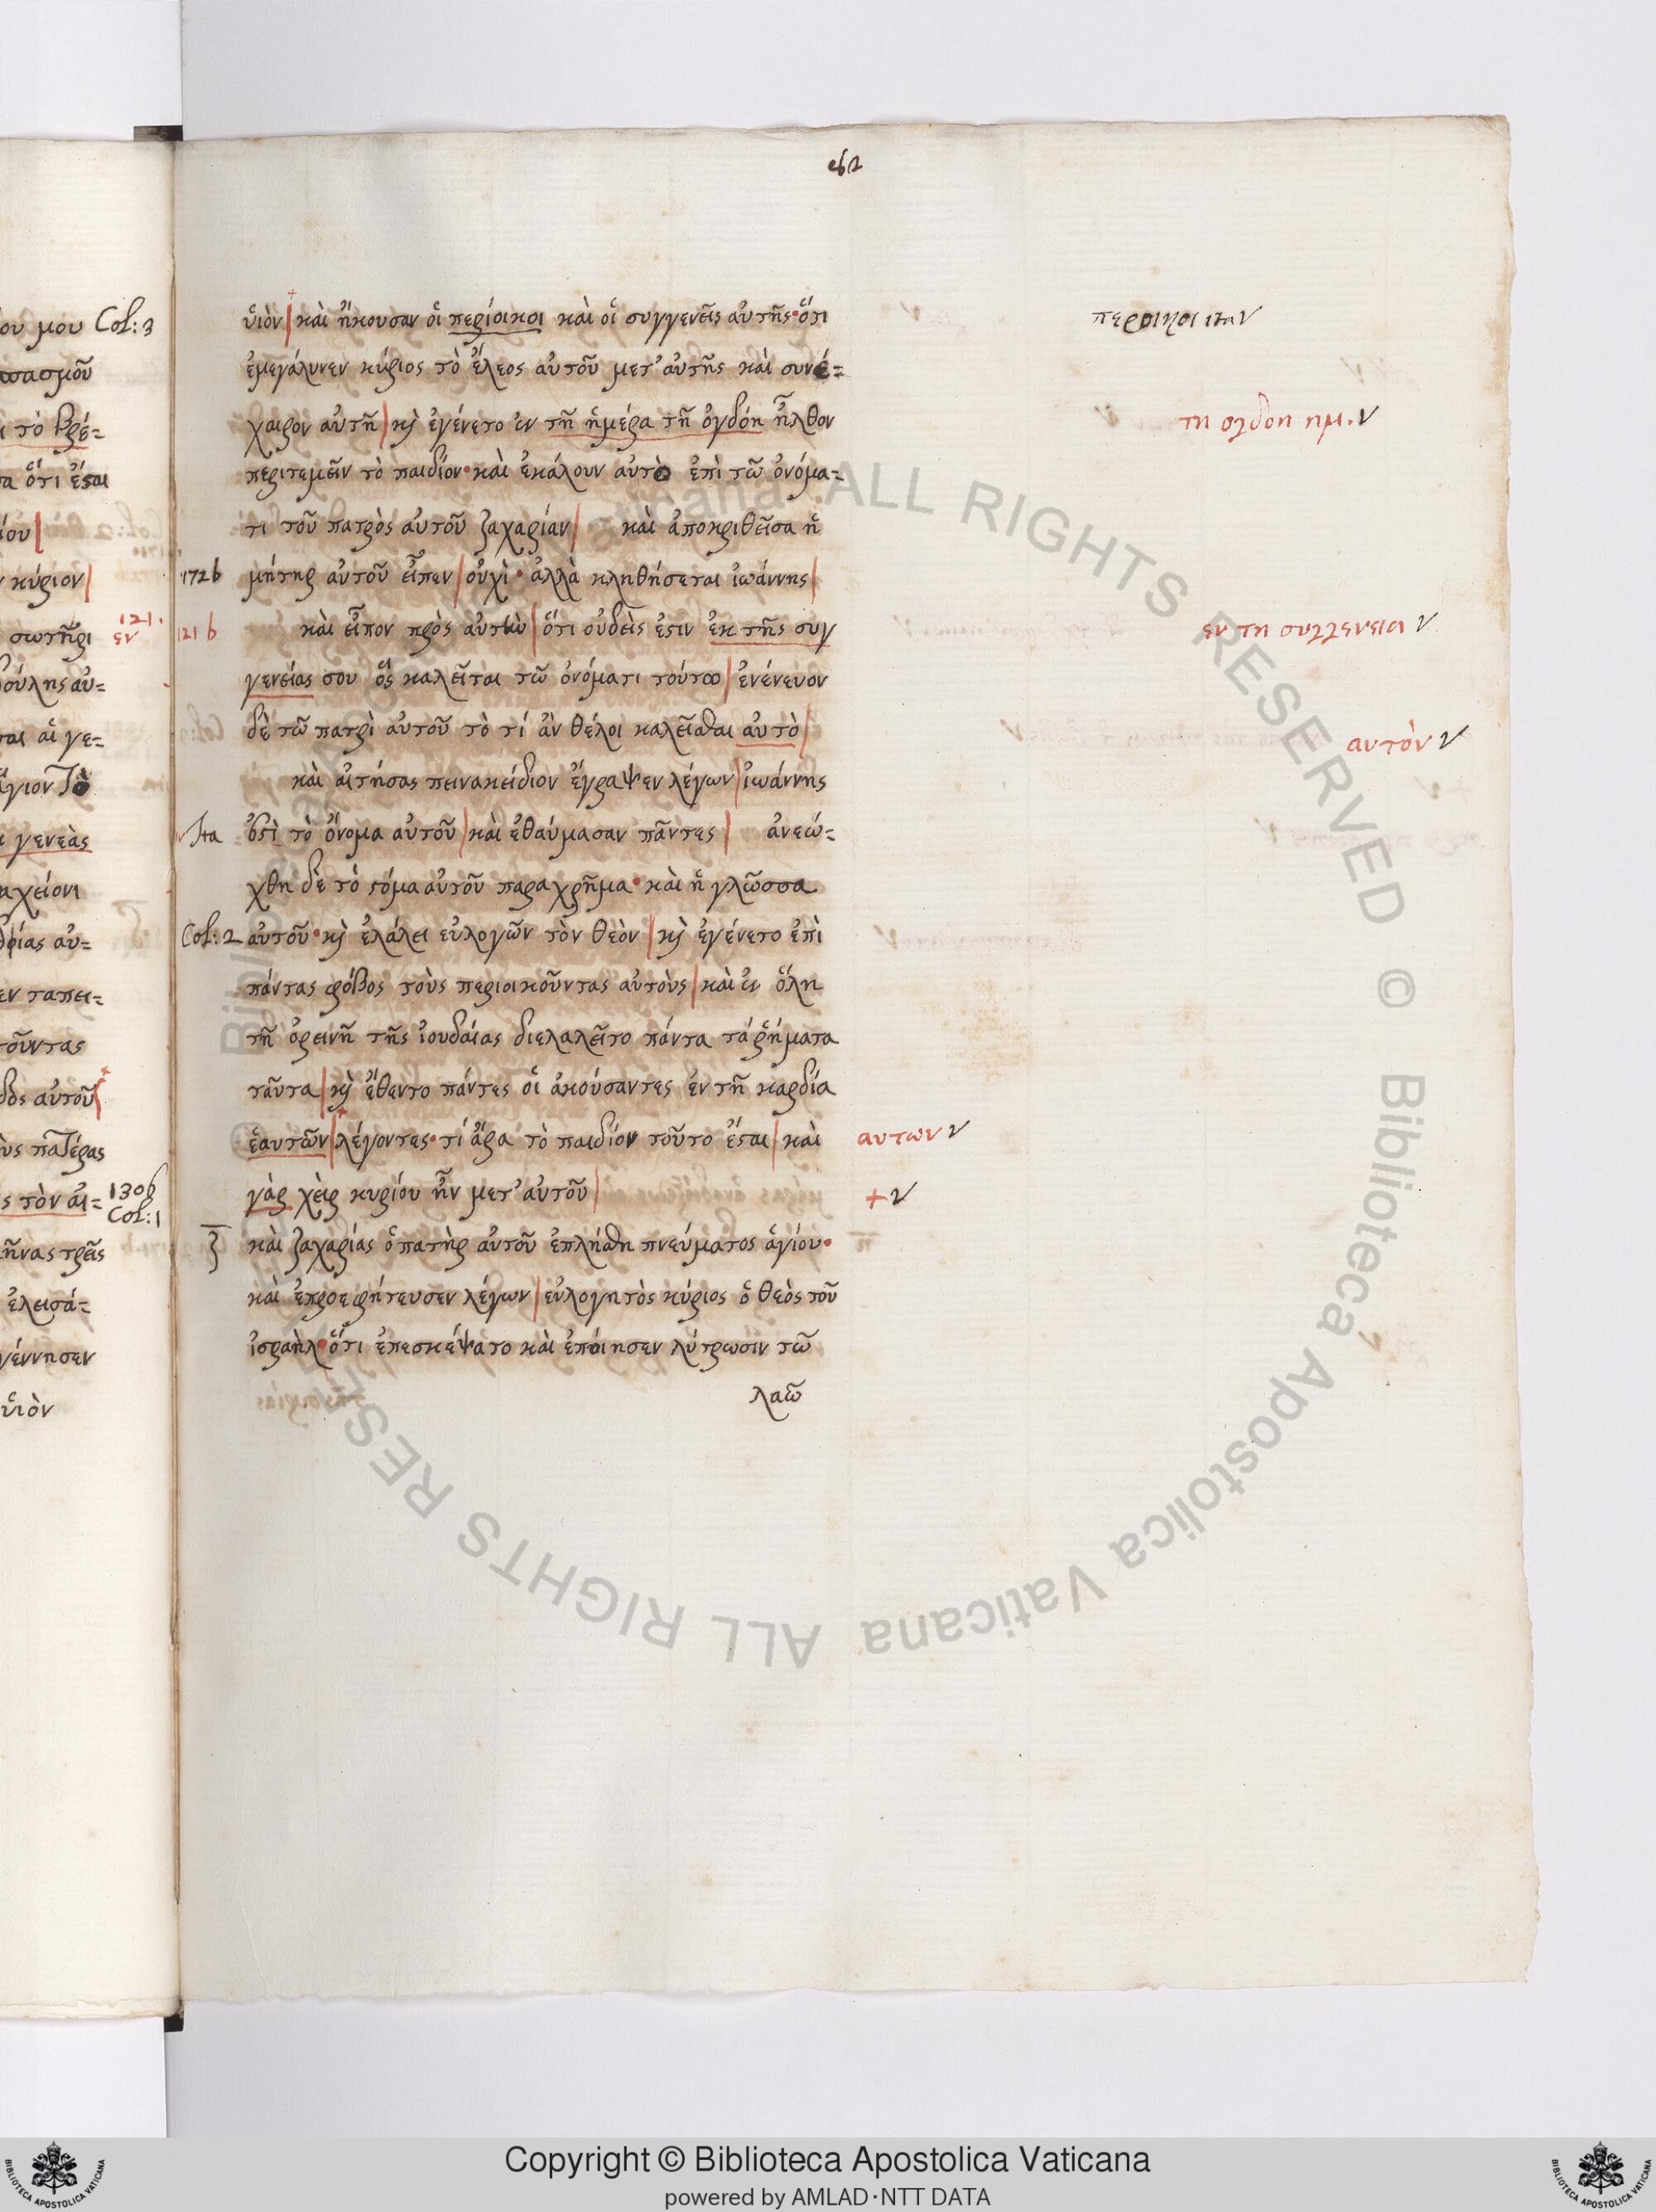 υἱὸν| καὶ ἤκουσαν οἱ περίοικοι καὶ οἱ συγγενεῖς αὐτῆς· ὅτι
περοικοι ita ν
ἐμεγάλυνεν κύριος τὸ ἔλεος αὐτοῦ μετ' αὐτῆς καὶ συνέ=
χαιρον αὐτῆ| κὶ ἐγένετο ἐν τῆ ἡμέρα τῆ ὀγδόη ἦλθον
τη ογδοη ημ. ν
περιτεμεῖν τὸ παιδίον· καὶ ἐκάλουν αὐτὸ ἐπὶ τῶ ὀνόμα=
τι τοῦ πατρὸς αὐτοῦ ζαχαρίαν| καὶ ἀποκριθεῖσα ἡ
172b μήτηρ αὐτοῦ εἶπεν| οὐχὶ· ἀλλὰ κληθήσεται ἰωάννης|
121b καὶ εἶπον πρὸς αὐτὴν| ὅτι οὐδεὶς ἐστιν ἐκ τῆς συγ
εν τη συγγενεια ν
γενείας σου ὃς καλεῖται τῶ ὀνόματι τούτω| ἐνένευον
δὲ τῶ πατρὶ αὐτοῦ τὸ τί ἂν θέλοι καλεῖσθαι αὐτὸ|
αυτὸν ν
καὶ αἰτήσας πεινακείδιον ἔγραψεν λέγων| ἰωάννης
ita ἐστὶ τὸ ὄνομα αὐτοῦ| καὶ ἐθαύμασαν πᾶντες| ἀνεώ=
χθη δὲ τὸ στόμα αὐτοῦ παραχρῆμα· καὶ ἡ γλῶσσα
Col: 2 αὐτοῦ· κὶ ἐλάλει εὐλογῶν τὸν θεὸν| κὶ ἐγένετο ἐπὶ
πάντας φόβος τοὺς περιοικοῦντας αὐτοὺς| καὶ ἐν ὅλη
τῆ ὀρεινῆ τῆς ἰουδαίας διελαλεῖτο πάντα τὰ ῥήματα
ταῦτα| κὶ ἔθεντο πάντες οἱ ἀκούσαντες ἐν τῆ καρδία
ἑαυτῶν| λέγοντες· τί ἄρα τὸ παιδίον τοῦτο ἔσται| καὶ
αυτων ν
γὰρ χεὶρ κυρίου ἦν μετ' αὐτοῦ|
+ ν
ξ καὶ ζαχαρίας ὁ πατὴρ αὐτοῦ ἐπλήσθη πνεύματος ἁγίου·
καὶ ἐπροεφήτευσεν λέγων| εὐλογητὸς κύριος ὁ θεὸς τοῦ
ἰσραὴλ· ὅτι ἐπεσκέψατο καὶ ἐποίησεν λύτρωσιν τῶ
λαῶ
ου μου Col: 3
ι τὸ βρέ=
α ὅτι ἔσται
ίου|
κύριον|
121.
σωτῆρι εν
δούλης αὐ=
ται αἱ γε=
ἅγιον τὸ
γενεὰς
ν ταπει=
τοῦντας
αὐτοῦ|
ὺς πατέρας
130b
ς τὸν αἰ= Col: 1
ῆνας τρεῖς
ἐλεισά=
γέννησεν
υἱὸν
© Biblioteca Apostolica Vaticana ALL RIGHTS RESERVED
Copyright © Biblioteca Apostolica Vaticana
powered by AMLAD·NTT DATA
BIBLIOTECA APOSTOLICA VATICANA
BIBLIOTECA APOSTOLICA VATICANA